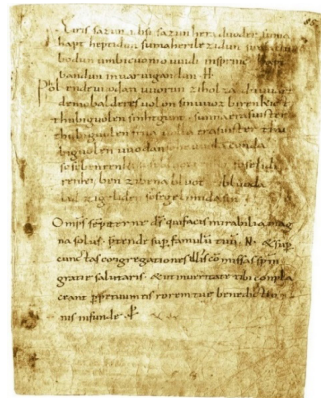 85
Eiris sazun idisi sazun hera duoder suma
hapt heptidun sumaherilezidun sumaclu
bodun umbicuonio uuidi insprinc hapt
bandun inuar uigandun · H ·
Phol endeuuodan uuorun ziholza du uuart
demobalderes uolon sinuuoz birenkict
thubiguolen sinhtgunt · sunnaerasuister
thubiguolen friia uolla erasuister thu
biguolen uuodan sohe uuolaconda
sosebenrenki soselidi
renki ben zibena bluot zibluoda
lid zigeliden sosegelimida sin
Omps sempiterne ds quifacis mirabilia mag
na solus · ptende sup famulū tuū · N · & sup
cunctas congregationes illi cōmissas spm
gratie salutaris · & ut inueritate tibi compla
ceant ppetuum eis rorem tue benedictio
nis infunde · p